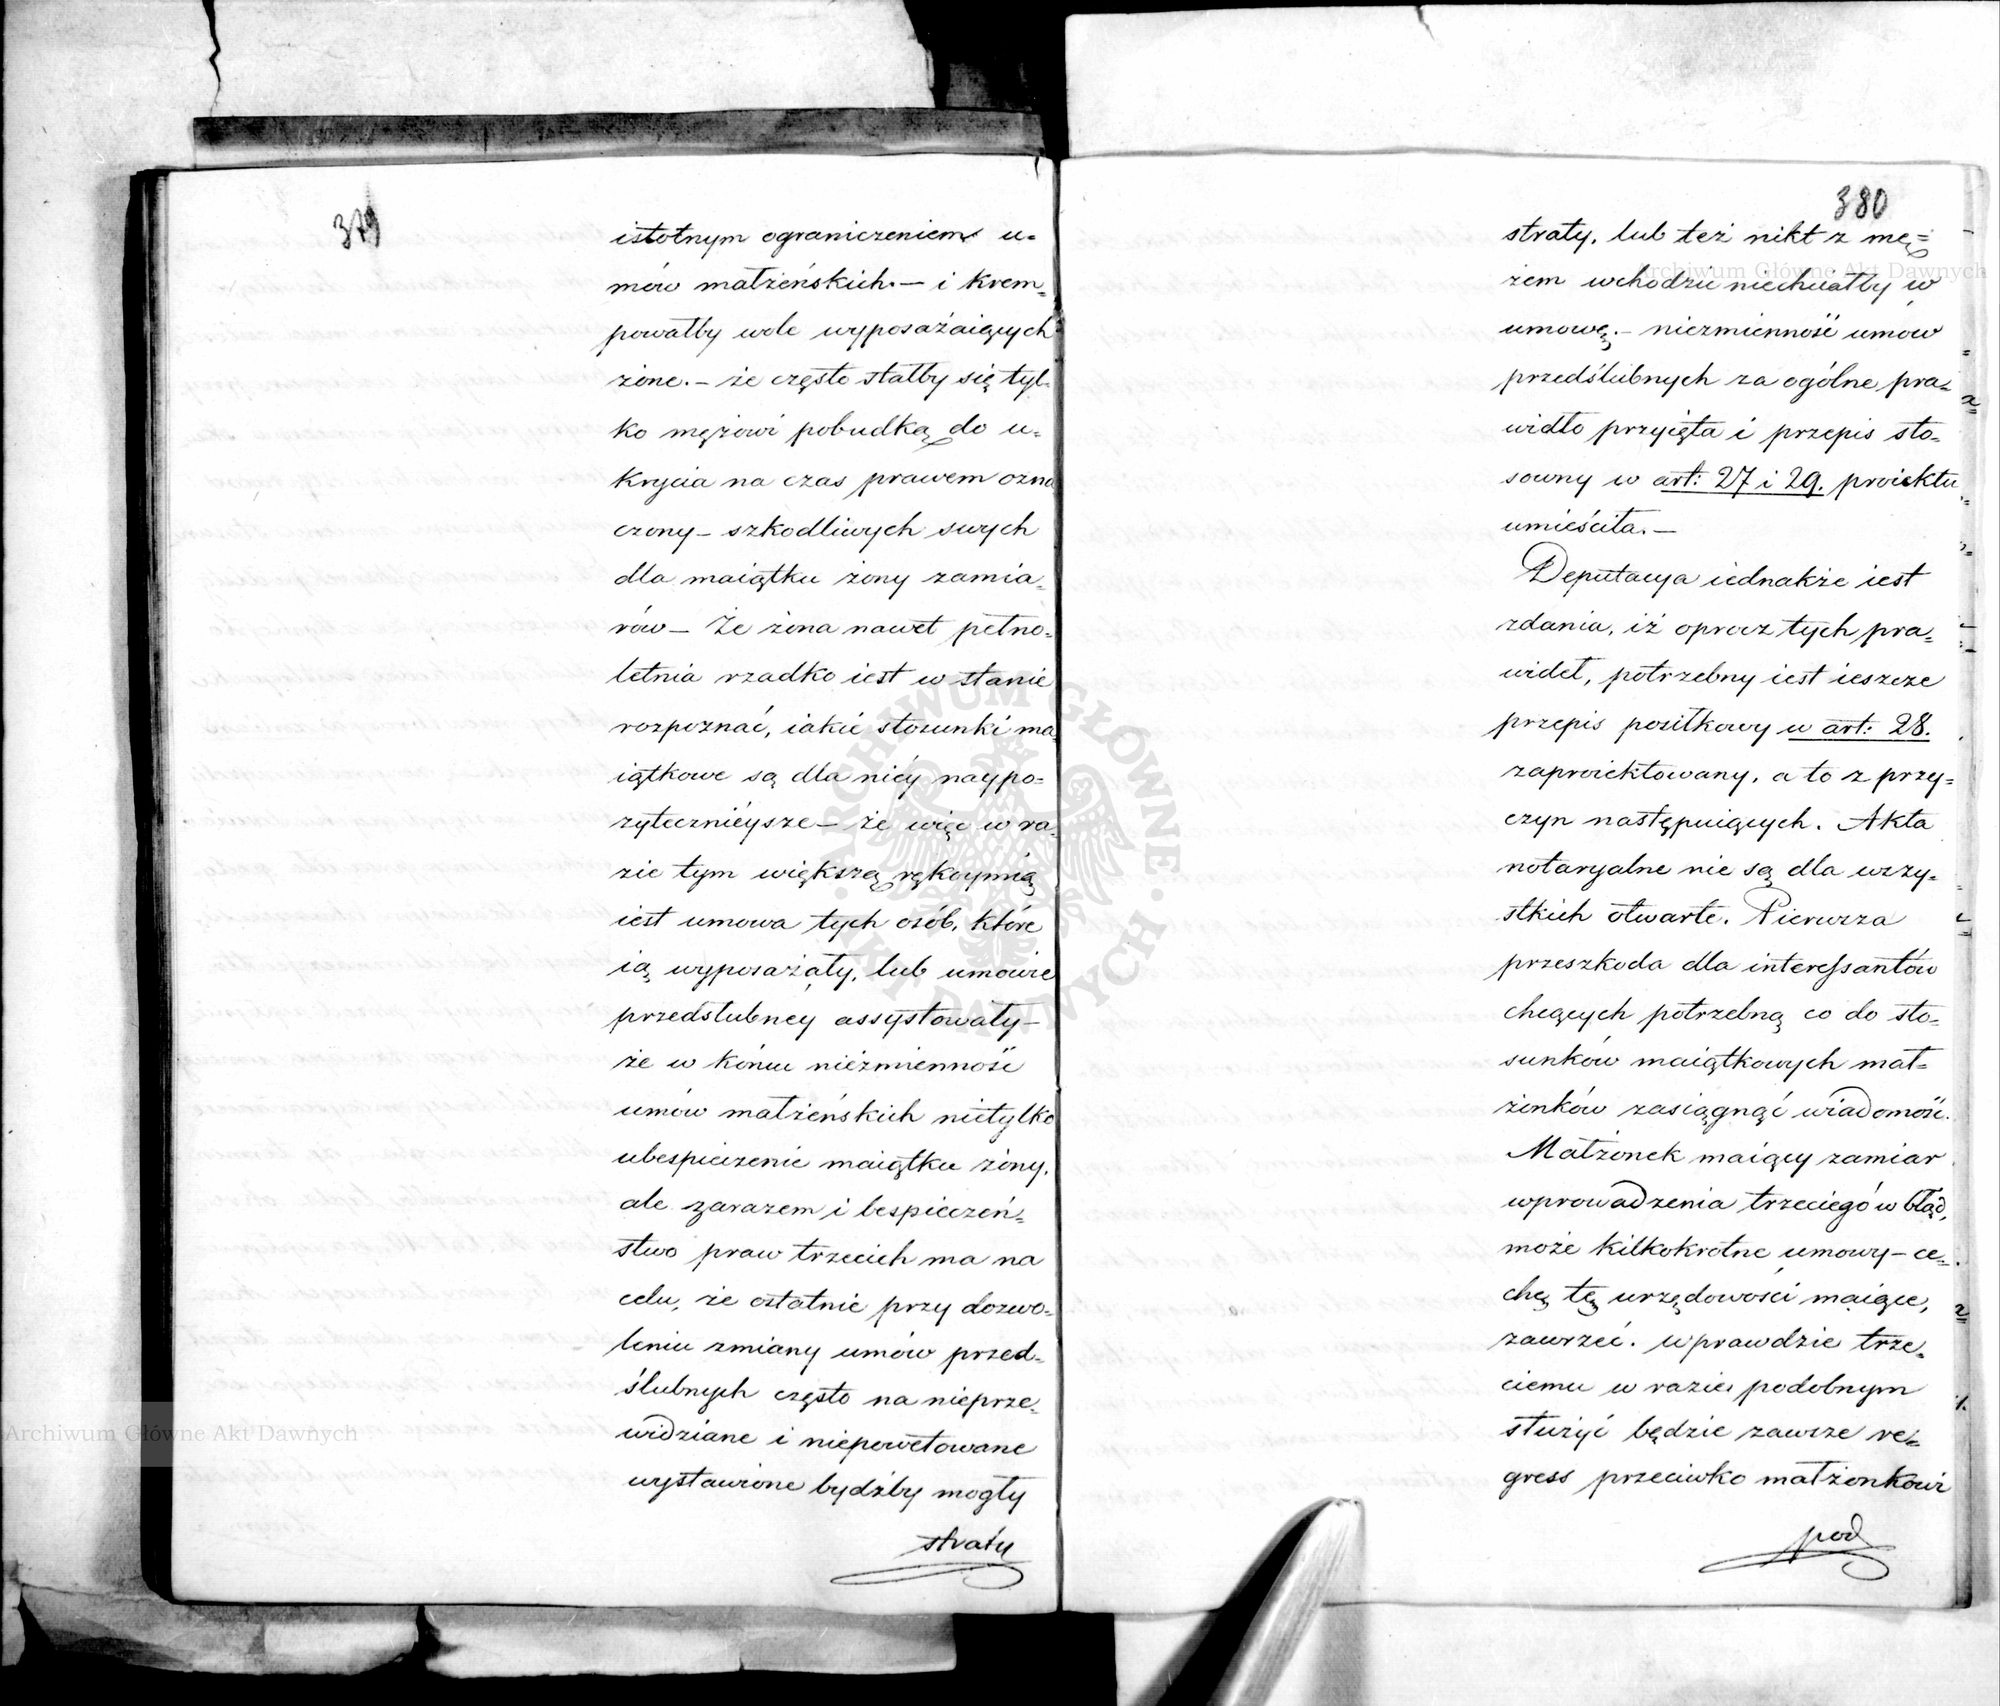 379
istotnym ograniczeniem u=
mów małżeńskich. — i krem=
powałby wole wyposażaiących
żone. — że często stałby się tyl=
ko mężowi pobudką do u=
krycia na czas prawem ozna
czony — szkodliwych swych
dla maiątku żony zamia=
rów — Że żona nawet pełno=
letnia rzadko iest w stanie
rozpoznać, iakie stosunki ma=
iątkowe są dla niéy naypo=
żytecznieysze — że więc w ra=
zie tym większą rękoymią
iest umowa tych osób, które
ią wyposażały, lub umowie
przedślubney assystowały —
że w końcu niezmienność
umów małżeńskich nietylko
ubespieczenie maiątku żony,
ale zarazem i bespieczeń=
stwo praw trzecich ma na
celu, że ostatnie przy dozwo=
leniu zmiany umów przed=
ślubnych często na nieprze=
widziane i niepowetowane
wystawione bydźby mogły
straty
380
straty, lub też nikt z mę=
żem wchodzić niechciałby w
umowę. — niezmienność umów
przedślubnych za ogólne pra=
widło przyięta i przepis sto=
sowny w art: 27 i 29. proiektu
umieściła. —
Deputacya iednakże iest
zdania, iż oprócz tych pra=
wideł, potrzebny iest ieszcze
przepis posiłkowy w art: 28.
zaproiektowany, a to z przy=
czyn następuiących. Akta
notaryalne nie są dla wszy=
stkich otwarte. Pierwsza
przeszkoda dla interessantów
chcących potrzebną co do sto=
sunków maiątkowych mał=
żonków zasiągnąć wiadomość.
Małżonek maiący zamiar
wprowadzenia trzeciego w błąd,
może kilkokrotne umowy — ce=
chę tę urzędowości maiące,
zawrzeć. wprawdzie trze=
ciemu w razie podobnym
służyć będzie zawsze re=
gress przeciwko małżonkowi
pod
Archiwum Główne Akt Dawnych
Archiwum Główne Akt Dawnych
ARCHIWUM GŁÓWNE AKT DAWNYCH